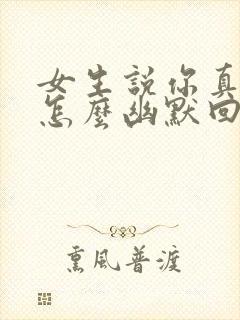 女生說你真
怎麼幽默回
熏風普渡